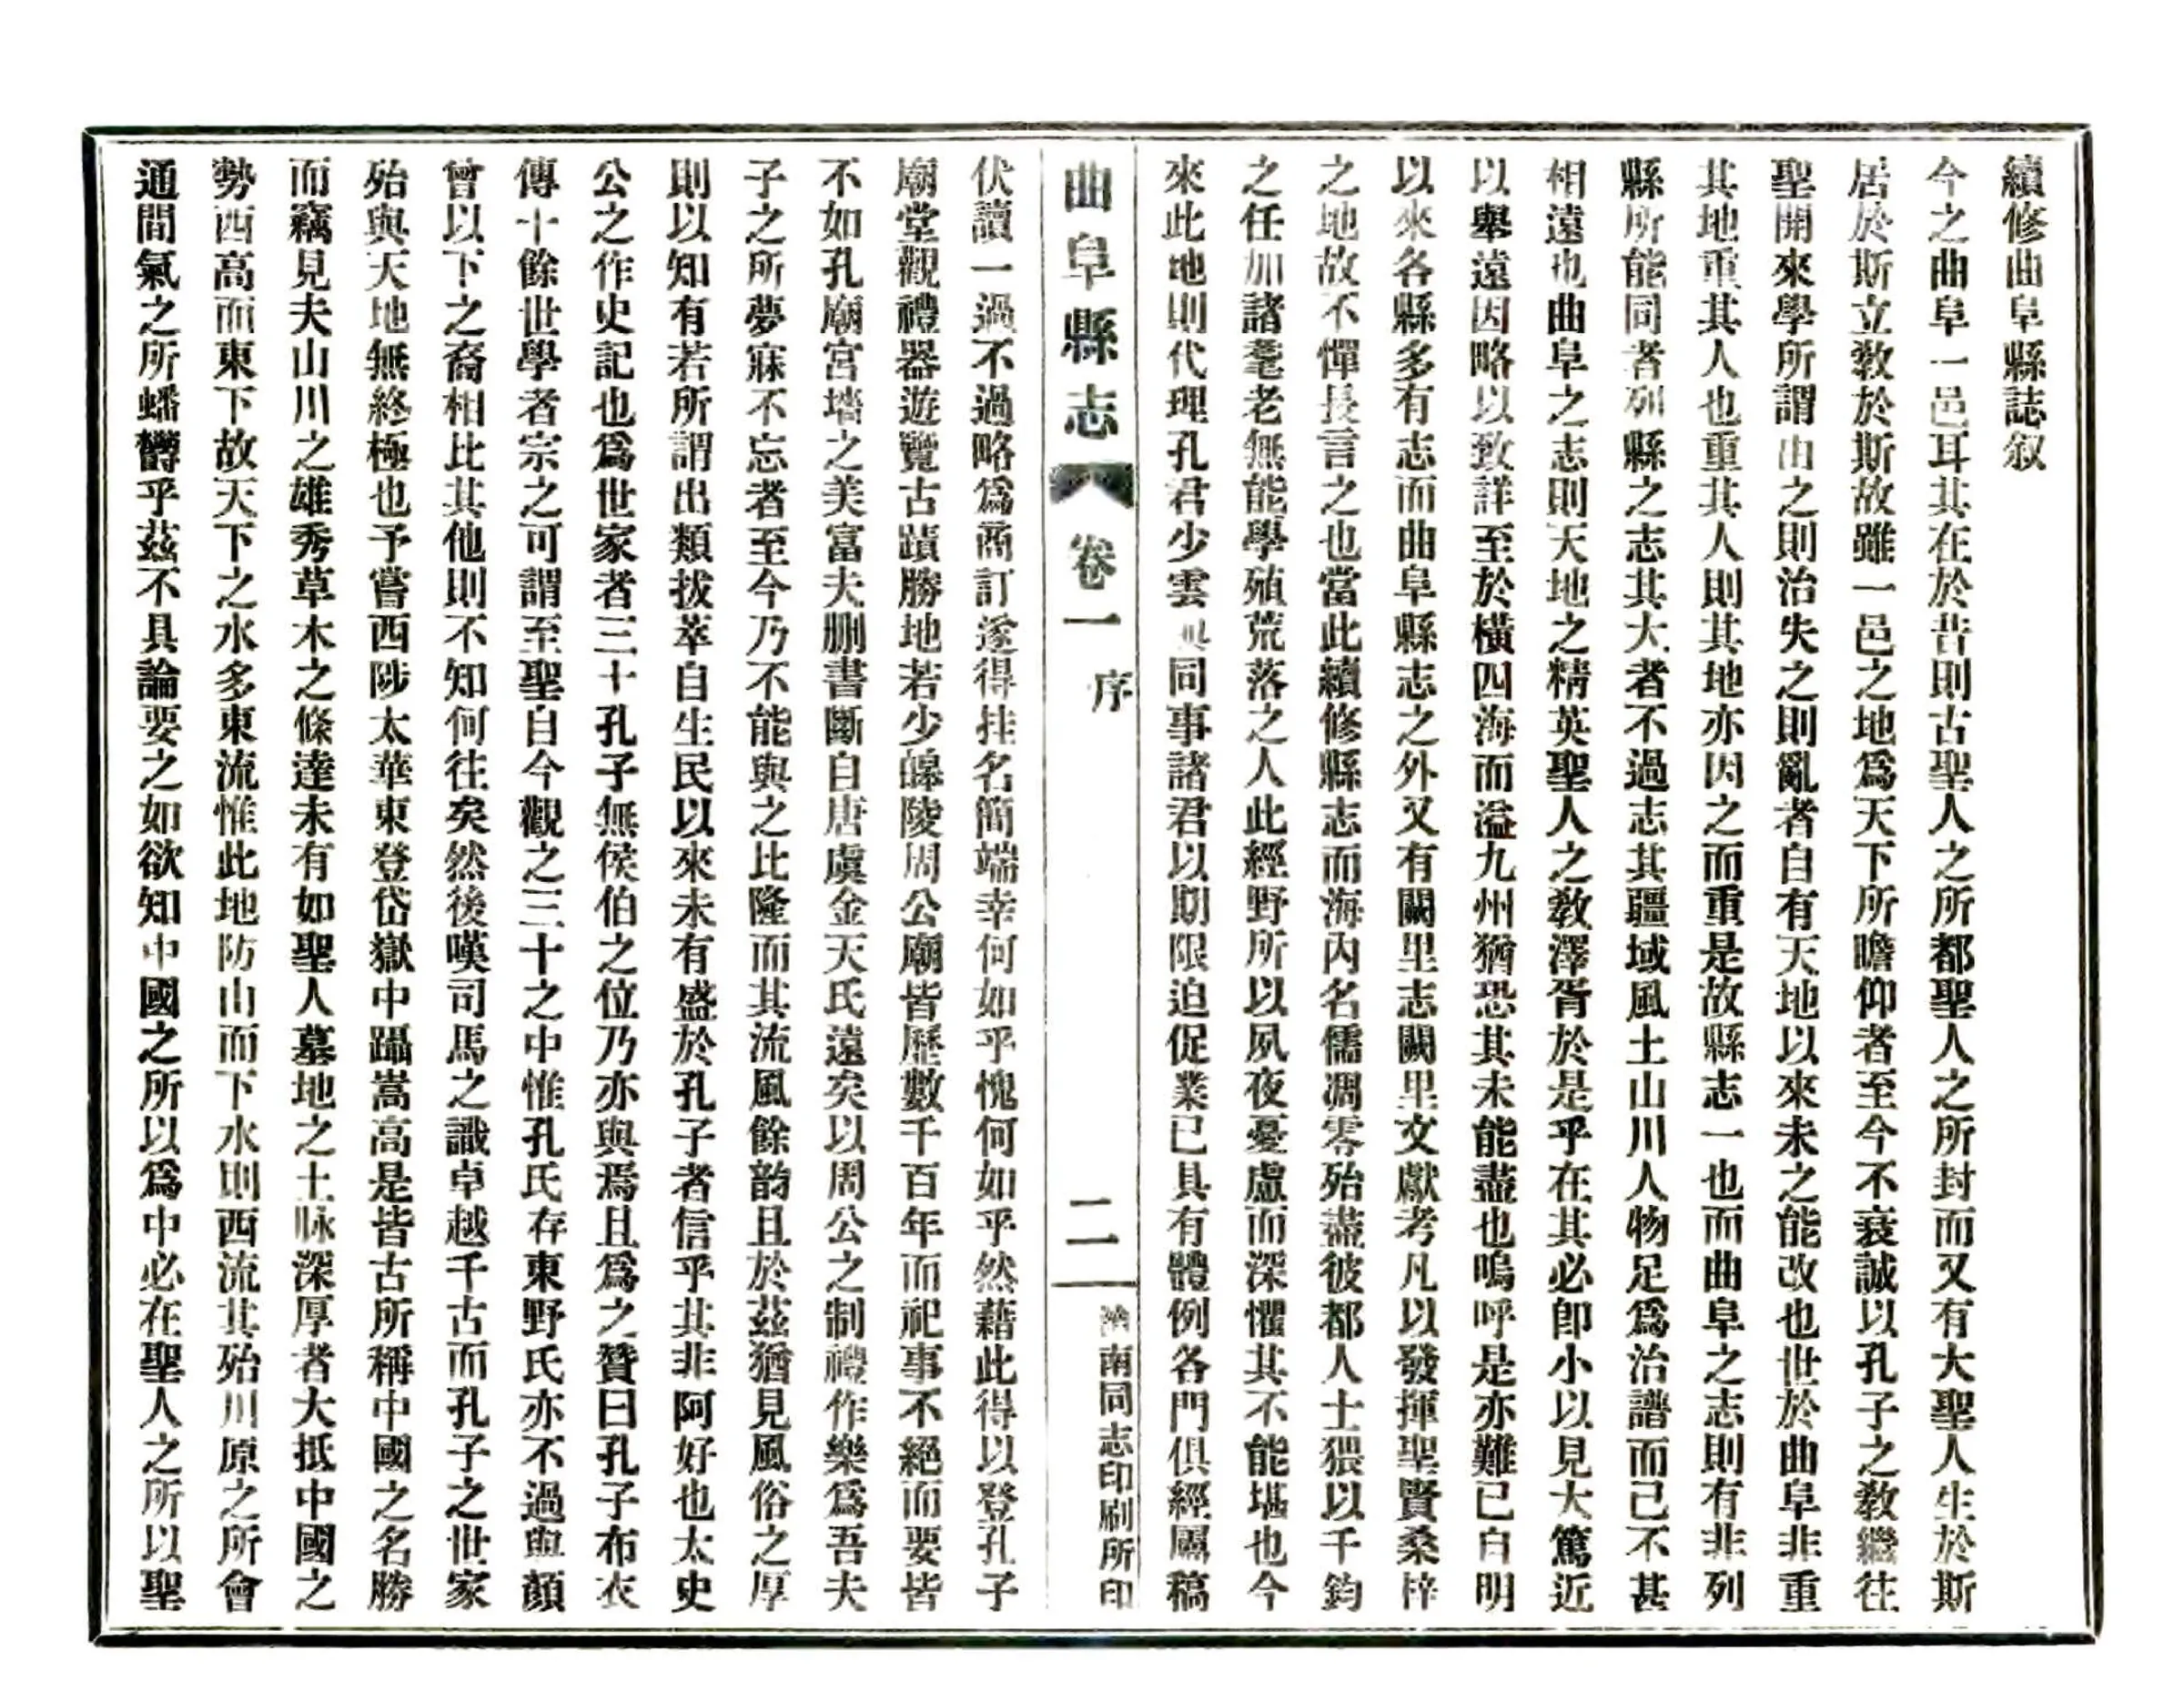 續修曲阜縣誌叙
今之曲阜一邑耳其在於昔則古聖人之所都聖人之所封而又有大聖人生於斯
居於斯立敎於斯故雖一邑之地爲天下所瞻仰者至今不衰誠以孔子之敎繼往
聖開來學所謂由之則治失之則亂者自有天地以來未之能改也世於曲阜非重
其地重其人也重其人則其地亦因之而重是故縣志一也而曲阜之志則有非列
縣所能同者列縣之志其大者不過志其疆域風土山川人物足爲治譜而已不甚
相遠也曲阜之志則天地之精英聖人之敎澤胥於是乎在其必卽小以見大篤近
以舉遠因略以致詳至於橫四海而溢九州猶恐其未能盡也嗚呼是亦難已自明
以來各縣多有志而曲阜縣志之外又有闕里志闕里文獻考凡以發揮聖賢桑梓
之地故不憚長言之也當此續修縣志而海內名儒凋零殆盡彼都人士猥以千鈞
之任加諸耄老無能學殖荒落之人此經野所以夙夜憂慮而深懼其不能堪也今
來此地則代理孔君少雲同事諸君以期限迫促業已具有體例各門俱經屬稿
曲阜縣志 卷一 序 二 濟南同志印刷所印
伏讀一過不過略爲商訂遂得挂名簡端幸何如乎愧何如乎然藉此得以登孔子
廟堂觀禮器遊覽古蹟勝地若少皞陵周公廟皆歷數千百年而祀事不絕而要皆
不如孔廟宮墻之美富夫刪書斷自唐虞金天氏遠矣以周公之制禮作樂爲吾夫
子之所夢寐不忘者至今乃不能與之比隆而其流風餘韵且於茲猶見風俗之厚
則以知有若所謂出類拔萃自生民以來未有盛於孔子者信乎其非阿好也太史
公之作史記也爲世家者三十孔子無侯伯之位乃亦與焉且爲之贊曰孔子布衣
傳十餘世學者宗之可謂至聖自今觀之三十之中惟孔氏存東野氏亦不過與顏
曾以下之裔相比其他則不知何往矣然後嘆司馬之識卓越千古而孔子之世家
殆與天地無終極也予嘗西陟太華東登岱嶽中躡嵩高是皆古所稱中國之名勝
而竊見夫山川之雄秀草木之條達未有如聖人墓地之土脉深厚者大抵中國之
勢西高而東下故天下之水多東流惟此地防山而下水則西流其殆川原之所會
通間氣之所蟠欝乎茲不具論要之如欲知中國之所以爲中必在聖人之所以聖